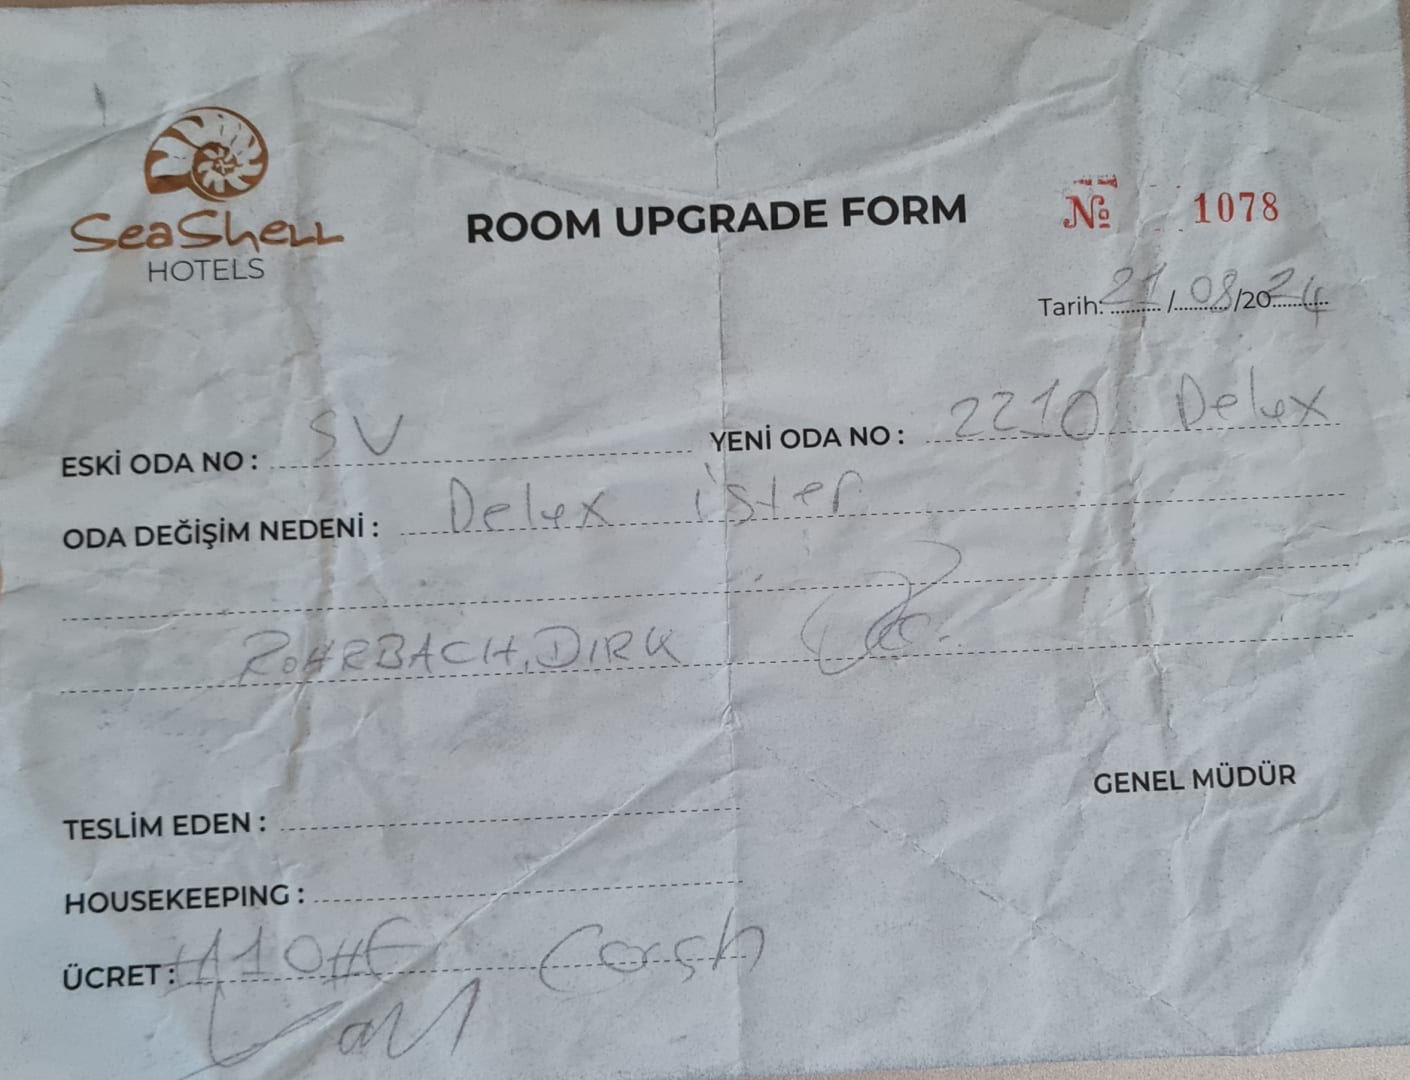 SeaShell
HOTELS
ROOM UPGRADE FORM
№ 1078
Tarih: 21/08/2024
ESKİ ODA NO : SV
YENİ ODA NO : 2210 Delux
ODA DEĞİŞİM NEDENİ : Delux ister
ROHRBACH, DIRK
GENEL MÜDÜR
TESLİM EDEN :
HOUSEKEEPING :
ÜCRET : #110#€ Cash